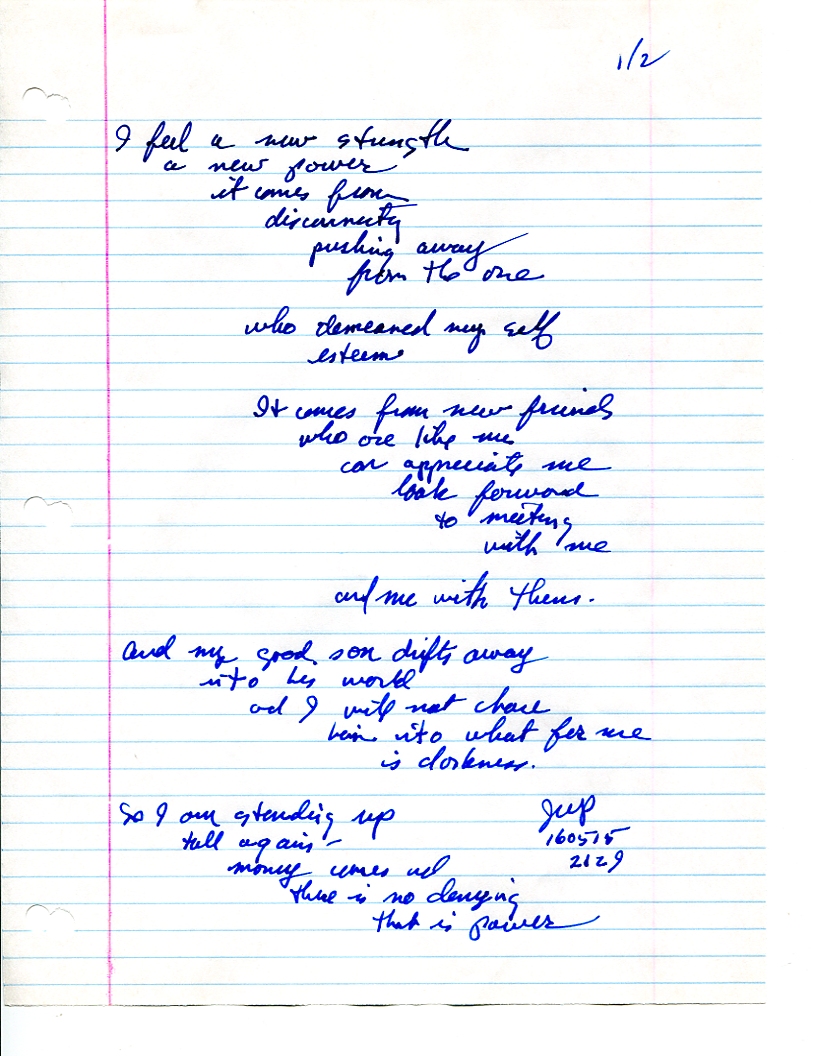 1/2
I feel a new strength
a new power
it comes from
disconnecty
pushing away
from the one
who demeaned my self
esteem
It comes from new friends
who are like me
can appreciate me
look forward
to meeting
with me
and me with them.
And my good son drifts away
into his world
and I will not chase
him into what for me
is darkness.
So I am standing up
tall again -
money comes and
there is no denying
that is power
JWP
160515
2129